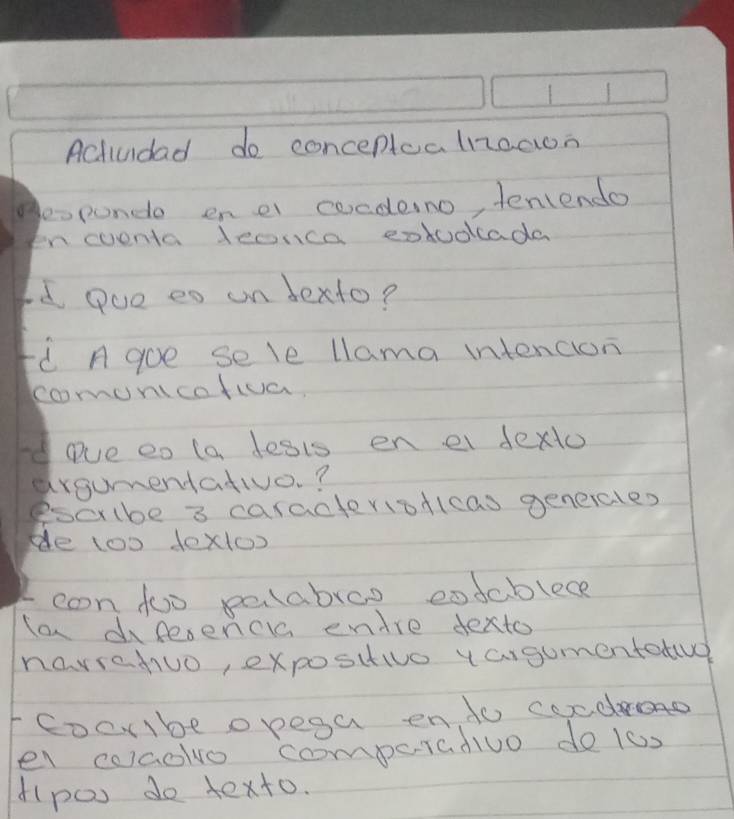 Actividad de conceptualización
Responde en el cuaderno, teniendo
en cuenta teorica estudicada
- ¿ Que es un texto?
- ¿ A que se le llama intención
comunicativa.
- ¿ Que es la tesis en el texto
argumentativo.?
escribe 3 caracteristicas generales
de los textos
- con tus palabras establece
la diferencia entre texto
narrativo, expositivo y argumentativo
- Escribe o pega en tu cuaderno
el cuadro comparativo de los
tipos de texto.